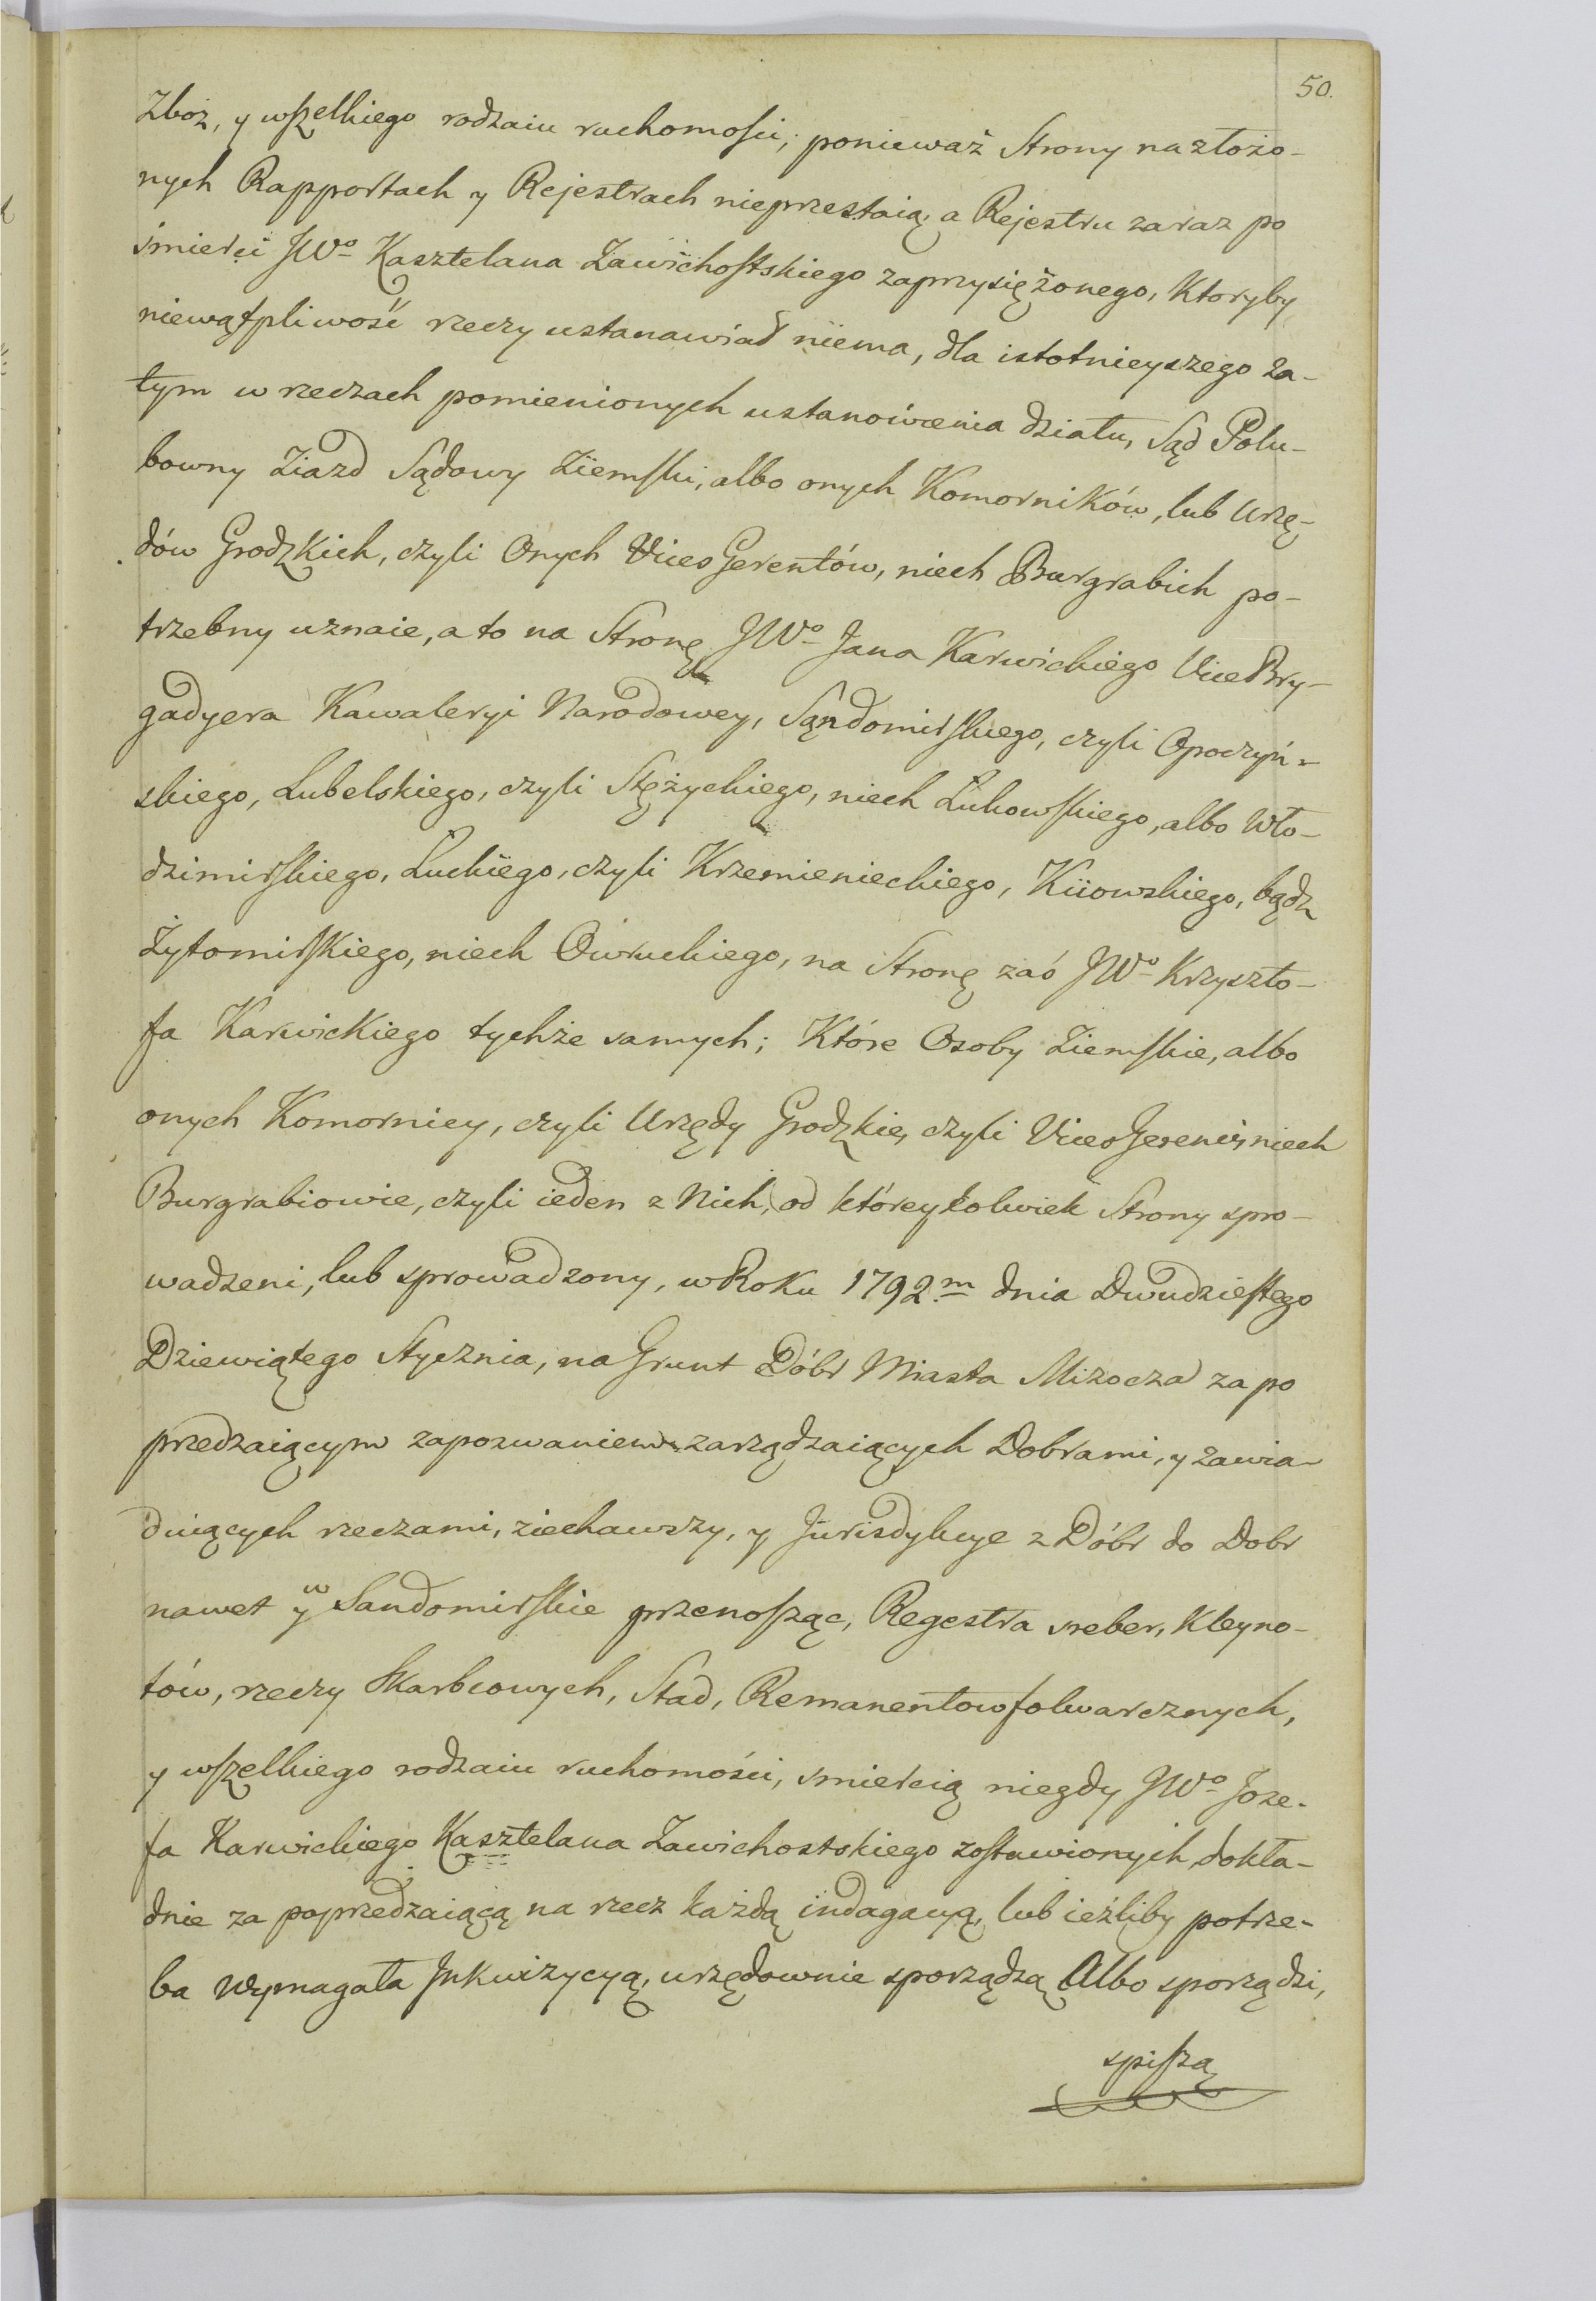 50.
Zboz, y wszelkiego rodzaiu ruchomości, ponieważ Strony na złożo-
nych Rapportach y Rejestrach nieprzestaią, a Rejestru zaraz po
śmierći JWo Kasztelana Zawichostskiego zaprzysiężonego, Ktoryby
niewątpliwość rzeczy ustanawiał niema, dla istotnieyszego za-
tym w rzeczach pomienionych ustanowienia działu, Sąd Polu-
bowny Ziazd Sądowy Ziemski, albo onych Komorników, lub Urzę-
dów Grodzkich, czyli Onych Vices Gerentów, niech Burgrabich po-
trzebny uznaie, a to na Stronę JWo Jana Karwickiego Vice Bry-
gadyera Kawaleryi Narodowey, Sandomirskiego, czyli Opoczyń-
skiego, Lubelskiego, czyli Stężyckiego, niech Łukowskiego, albo Wło-
dzimirskiego, Łuckiego, czyli Krzemienieckiego, Kiiowskiego, bądz
Żytomirskiego, niech Owruckiego, na Stronę zaś JWo Krzyszto-
fa Karwickiego tychże samych; Które Osoby Ziemskie, albo
onych Komornicy, czyli Urzędy Grodzkie, czyli Vices Gerenci, niech
Burgrabiowie, czyli ieden z Nich, od któreykolwiek Strony spro-
wadzeni, lub sprowadzony, w Roku 1792m dnia Dwudziestego
Dziewiątego Stycznia, na Grunt Dóbr Miasta Mizocza za po
przedzaiącym zapozwaniem zarządzaiących Dobrami, y zawia-
duiących rzeczami, ziechawszy, y Jurisdykcye z Dóbr do Dobr
nawet w Sandomirskie przenosząc, Regestra sreber, Kleyno-
tów, rzeczy Skarbcowych, Stad, Remanentow folwarcznych,
y wszelkiego rodzaiu ruchomości, smiercią niegdy JWo Joze-
fa Karwickiego Kasztelana Zawichostskiego zostawionych, dokła-
dnie za poprzedzaiącą na rzecz każdą indagacyą, lub ieźliby potrze-
ba wymagała Jnkwizycyą, urzędownie sporządzą Albo sporządzi,
spiszą